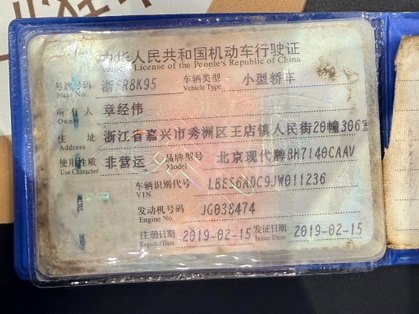 中华人民共和国机动车行驶证
License of the People's Republic of China
号牌号码 浙FR8K95 车辆类型 小型轿车
Plate No. Vehicle Type
所有人 章经伟
Owner
住址 浙江省嘉兴市秀洲区王店镇人民街20幢306室
Address
使用性质 非营运 品牌型号 北京现代牌BH7140CAAV
Use Character Model
车辆识别代号 LBES6ADC9JW011236
VIN
发动机号码 JG038474
Engine No.
注册日期 2019-02-15 发证日期 2019-02-15
Register Date Issue Date